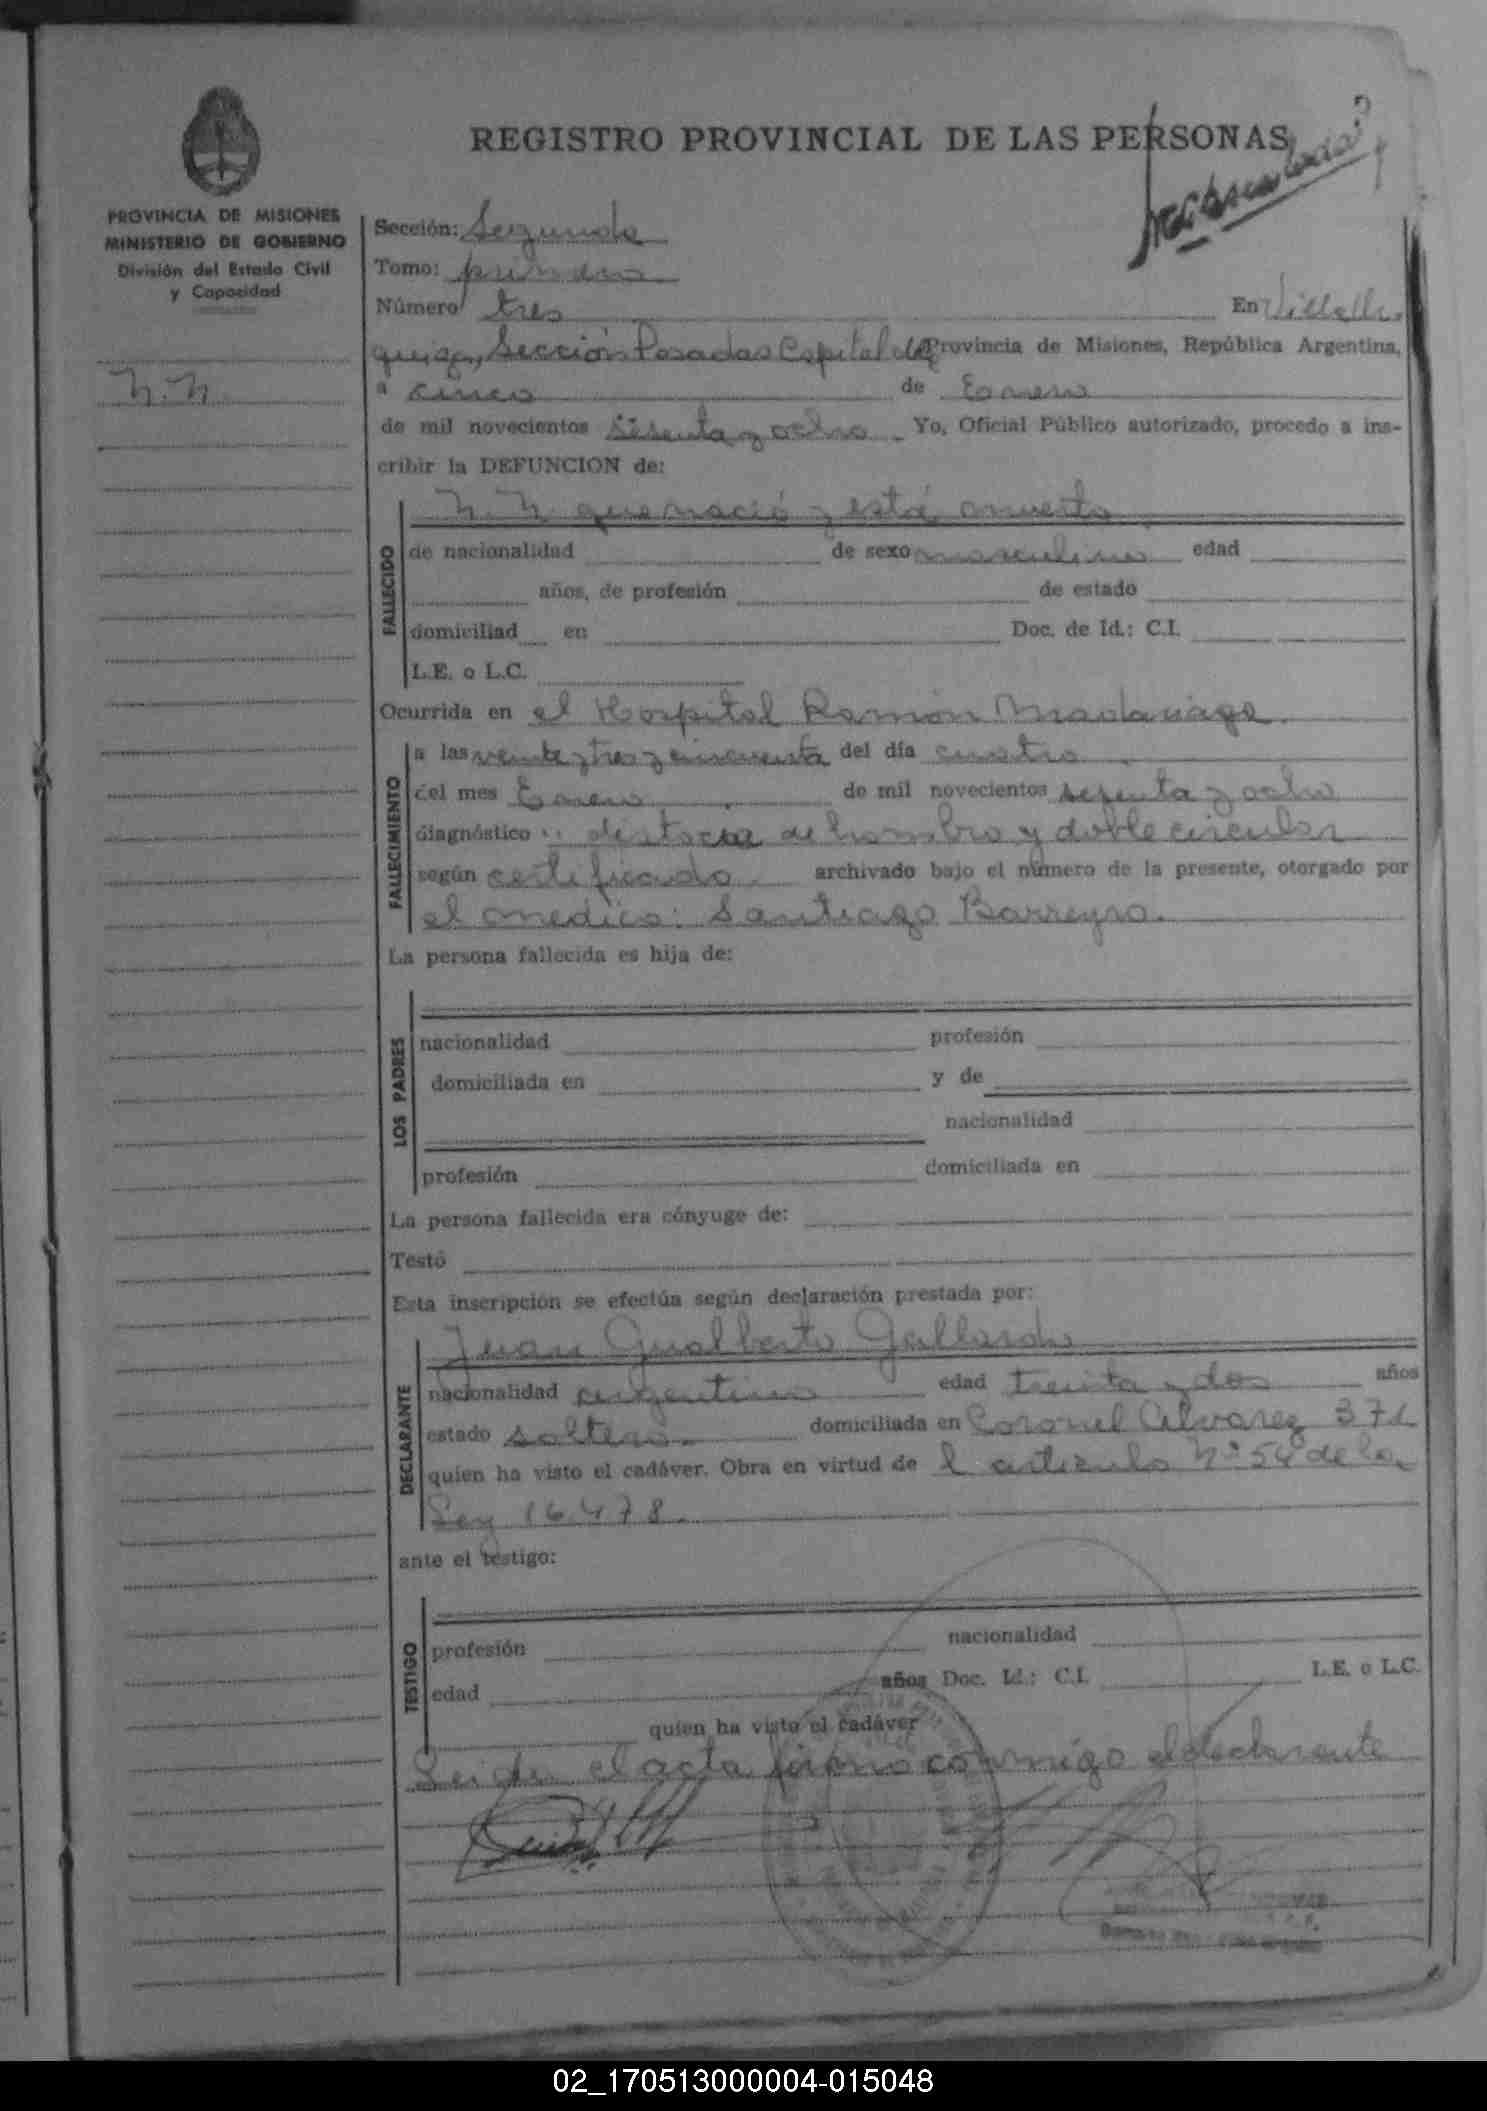 REGISTRO PROVINCIAL DE LAS PERSONAS
PROVINCIA DE MISIONES
MINISTERIO DE GOBIERNO
División del Estado Civil
y Capacidad
N.N.
Sección: Segunda
Tomo: primero
Número tres En Villalli.
quiza, Sección Posadas Capital de Provincia de Misiones, República Argentina,
a cinco de Enero
de mil novecientos sesenta y ocho. Yo, Oficial Público autorizado, procedo a ins-
cribir la DEFUNCION de:
FALLECIDO
N. N. que nació y está muerto
de nacionalidad de sexo masculino edad
años, de profesión de estado
domiciliad en Doc. de Id.: C.I.
L.E. o L.C.
Ocurrida en el Hospital Ramón Madariaga.
FALLECIMIENTO
a las veinte y tres y cincuenta del día cuatro
del mes Enero de mil novecientos sesenta y ocho
diagnóstico: distocia de hombro y doble circular
según certificado archivado bajo el número de la presente, otorgado por
el medico: Santiago Barreyro.
La persona fallecida es hija de:
LOS PADRES
nacionalidad profesión
domiciliada en y de
nacionalidad
profesión domiciliada en
La persona fallecida era cónyuge de:
Testó
Esta inscripción se efectúa según declaración prestada por:
DECLARANTE
Juan Gualberto Gallardo
nacionalidad argentino edad treinta y dos años
estado soltero. domiciliada en Coronel Alvarez 371
quien ha visto el cadáver. Obra en virtud de l articulo Nº 54 de la
Ley 16.478.
ante el testigo:
TESTIGO
profesión nacionalidad
edad años Doc. Id.: C.I. L.E. o L.C.
quien ha visto el cadáver
Leida el acta firma conmigo el declarante
02_170513000004-015048